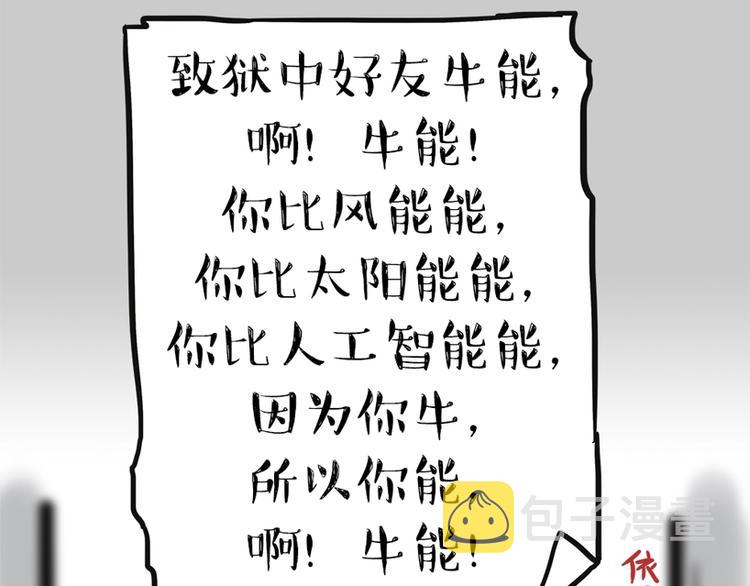 致狱中好友牛能，
啊！牛能！
你比风能能，
你比太阳能能，
你比人工智能能，
因为你牛，
所以你能，
啊！牛能！
包子漫畫
依